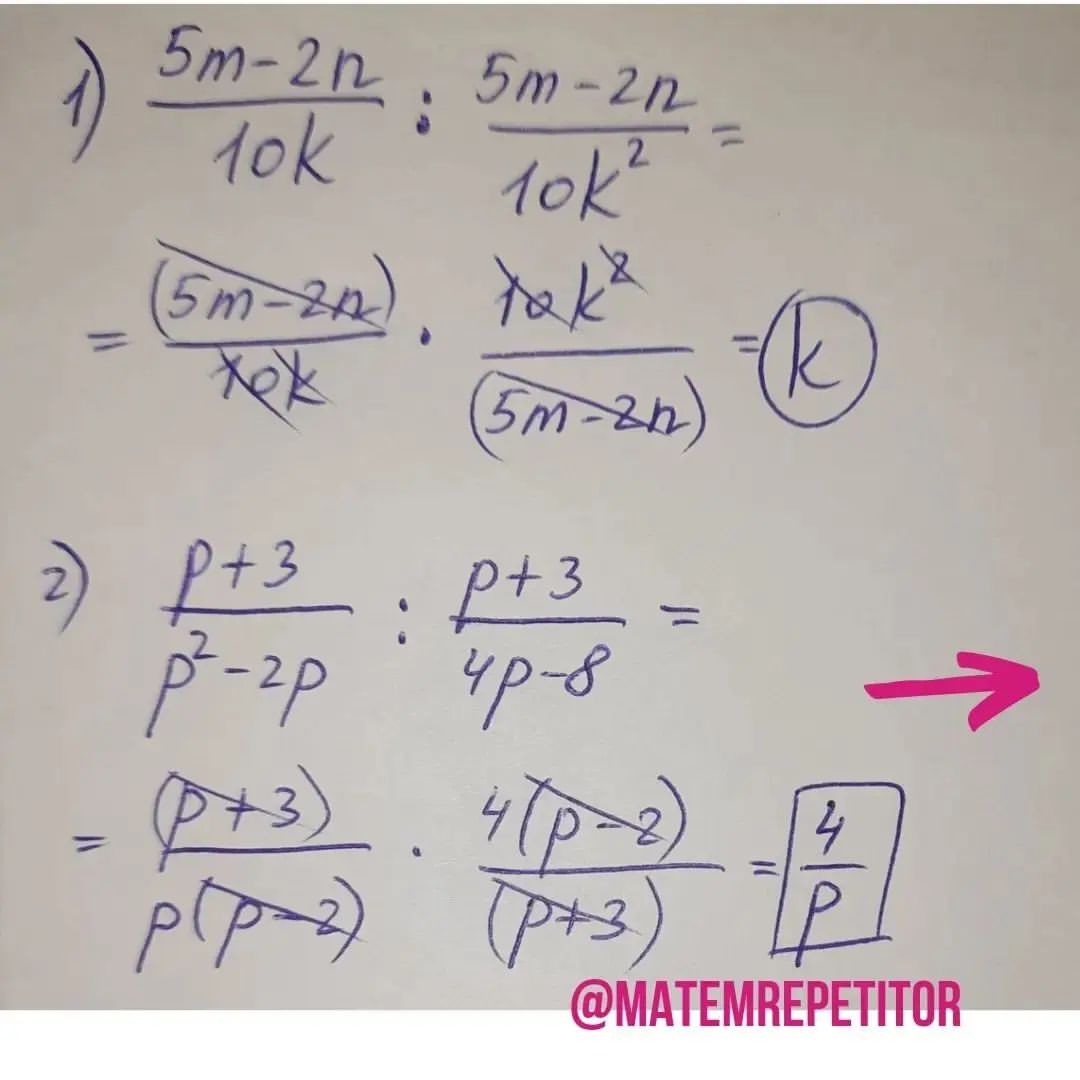 1) (5m-2n)/(10k) : (5m-2n)/(10k²) =
= (5m-2n)/(10k) · (10k²)/(5m-2n) = k
2) (p+3)/(p²-2p) : (p+3)/(4p-8) =
= (p+3)/(p(p-2)) · (4(p-2))/(p+3) = 4/p
@MATEMREPETITOR